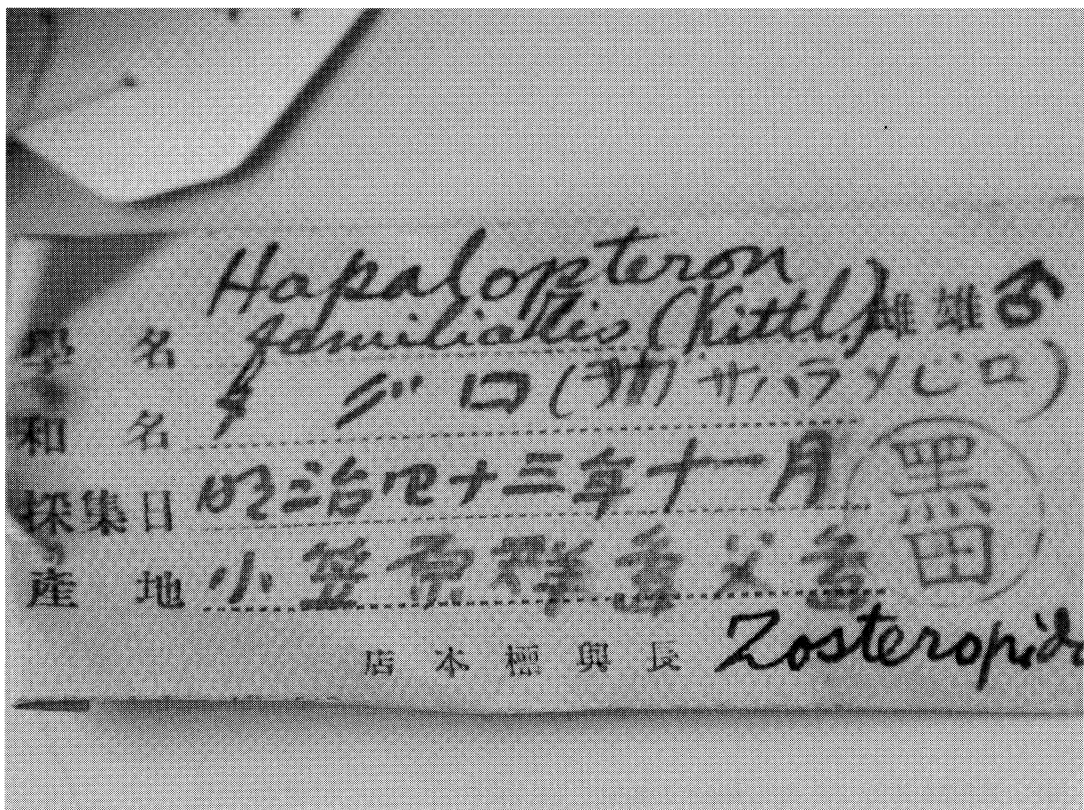 Hapalopteron
學名 familiaris (Kittl.) 雌雄♂
和名 メグロ(ヲガサハラメジロ)
採集日 明治四十三年十一月
黑田
產地 小笠原群島父島
店本標與長 Zosteropid